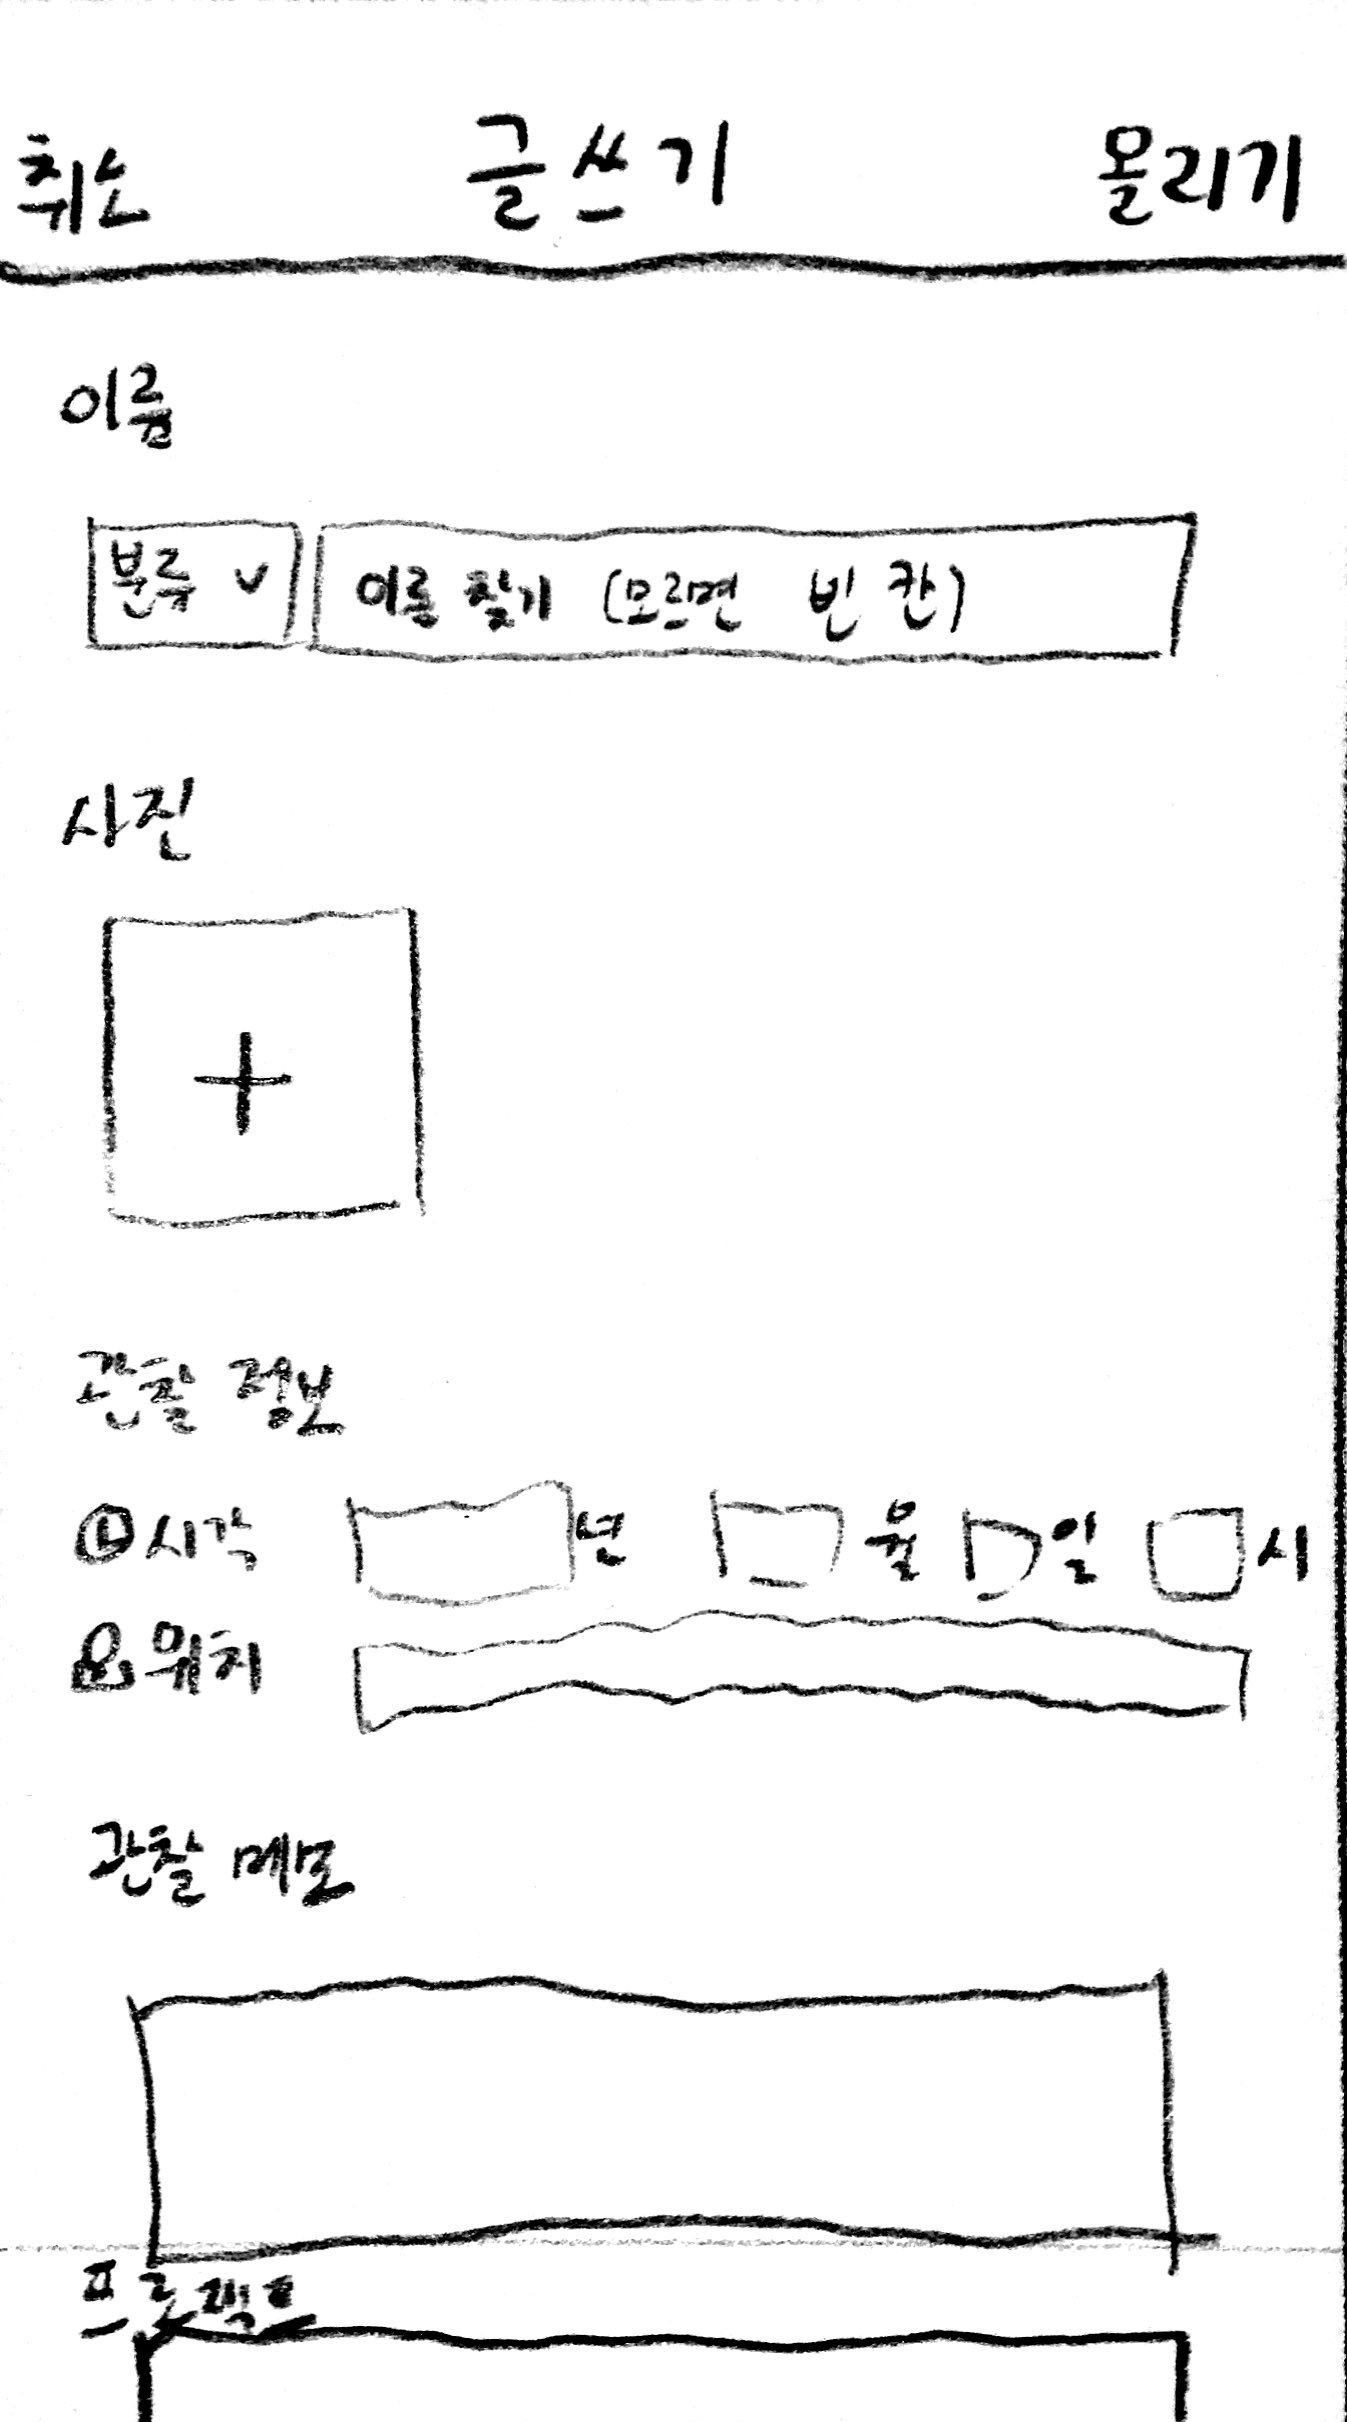 취소 글쓰기 올리기
이름
분류 이름 찾기 (모르면 빈 칸)
사진
관찰 정보
시각 년 월 일 시
위치
관찰 메모
프로젝트